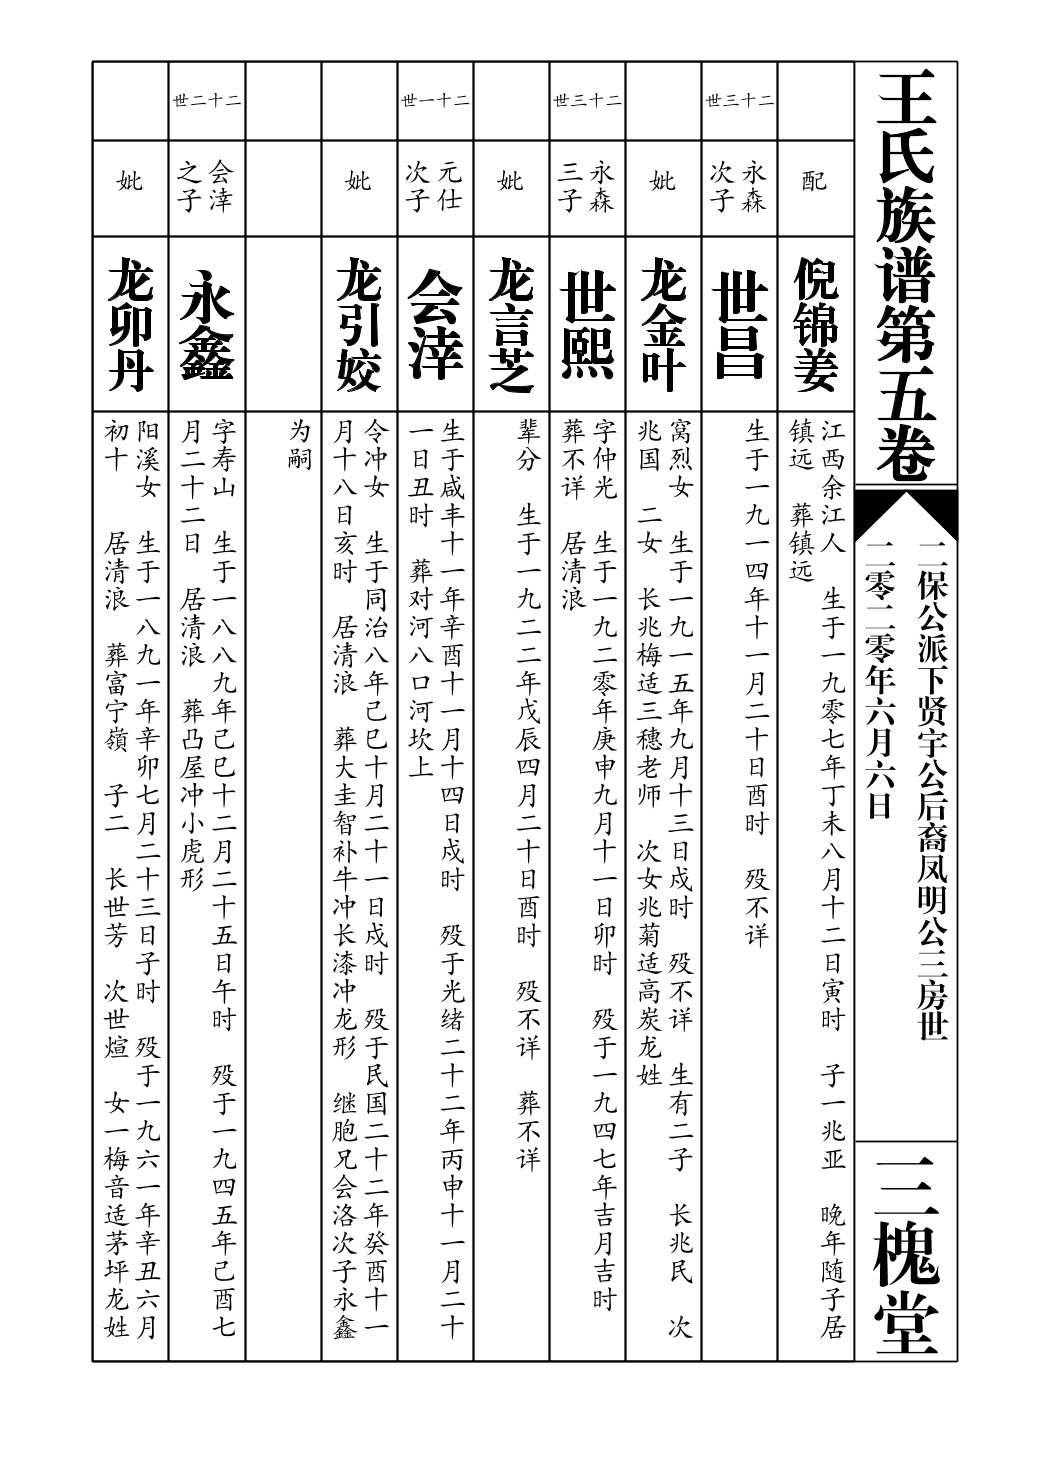 王氏族谱第五卷
二保公派下贤宇公后裔凤明公三房世
二零二零年六月六日
三槐堂
配
倪锦姜
江西余江人　生于一九零七年丁未八月十二日寅时　子一兆亚　晚年随子居
镇远　葬镇远
二十三世
永森
次子
世昌
生于一九一四年十一月二十日酉时　殁不详
妣
龙金叶
窝烈女　生于一九一五年九月十三日戍时　殁不详　生有二子　长兆民　次
兆国　二女　长兆梅适三穗老师　次女兆菊适高炭龙姓
二十三世
永森
三子
世熙
字仲光　生于一九二零年庚申九月十一日卯时　殁于一九四七年吉月吉时
葬不详　居清浪
妣
龙言芝
辈分　生于一九二二年戊辰四月二十日酉时　殁不详　葬不详
二十一世
元仕
次子
会涬
生于咸丰十一年辛酉十一月十四日戍时　殁于光绪二十二年丙申十一月二十
一日丑时　葬对河八口河坎上
妣
龙引姣
令冲女　生于同治八年己巳十月二十一日戍时　殁于民国二十二年癸酉十一
月十八日亥时　居清浪　葬大圭智补牛冲长漆冲龙形　继胞兄会洛次子永鑫
为嗣
二十二世
会涬
之子
永鑫
字寿山　生于一八八九年己巳十二月二十五日午时　殁于一九四五年己酉七
月二十二日　居清浪　葬凸屋冲小虎形
妣
龙卯丹
阳溪女　生于一八九一年辛卯七月二十三日子时　殁于一九六一年辛丑六月
初十　居清浪　葬富宁嶺　子二　长世芳　次世煊　女一梅音适茅坪龙姓